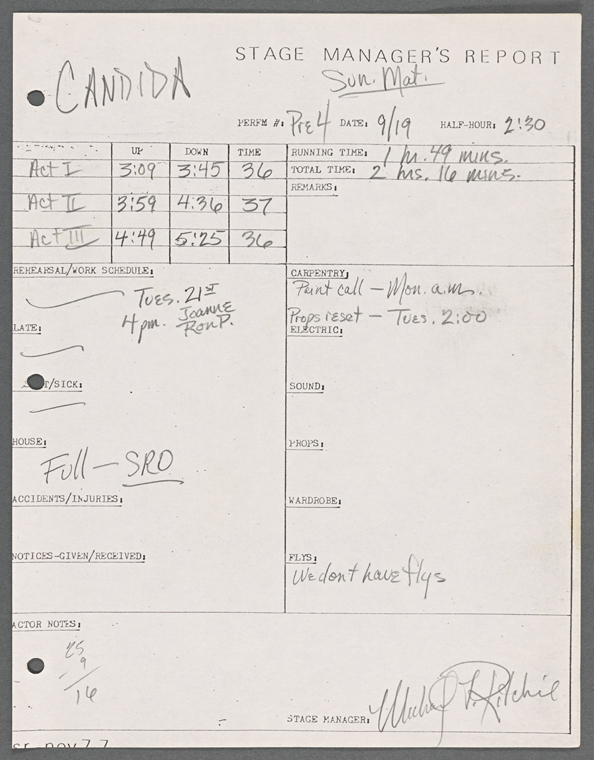 STAGE MANAGER'S REPORT
CANDIDA
Sun. Mat.
PERFM #: Pre 4 DATE: 9/19 HALF-HOUR: 2:30
UP DOWN TIME RUNNING TIME: 1 hr. 49 mins.
Act I 3:09 3:45 36 TOTAL TIME: 2 hrs. 16 mins.
REMARKS:
Act II 3:59 4:36 37
Act III 4:49 5:25 36
REHEARSAL/WORK SCHEDULE: CARPENTRY:
Tues. 21st Paint call — Mon. a.m.
4 pm. Joanne Props reset — Tues. 2:00
Ron P.
LATE: ELECTRIC:
T/SICK: SOUND:
HOUSE: PROPS:
Full — SRO
ACCIDENTS/INJURIES: WARDROBE:
NOTICES-GIVEN/RECEIVED: FLYS:
We dont have flys
ACTOR NOTES:
25
- 9
16
STAGE MANAGER: Michael F. Ritchie